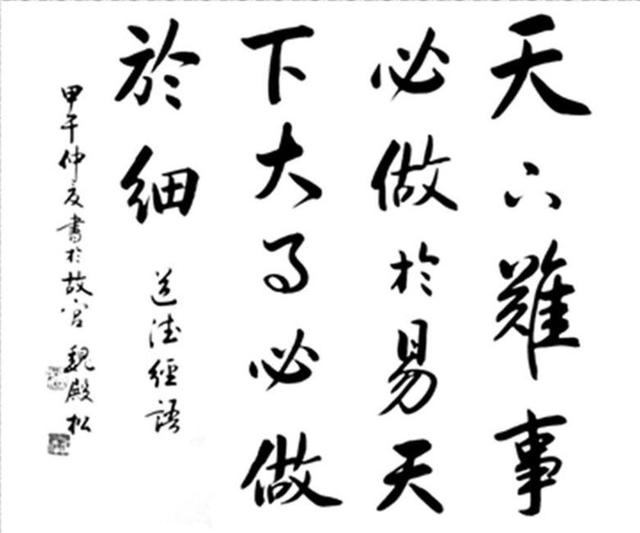 天下難事
必做於易天
下大事必做
於細
道德經語
甲午仲夏書於故宮 魏殿松